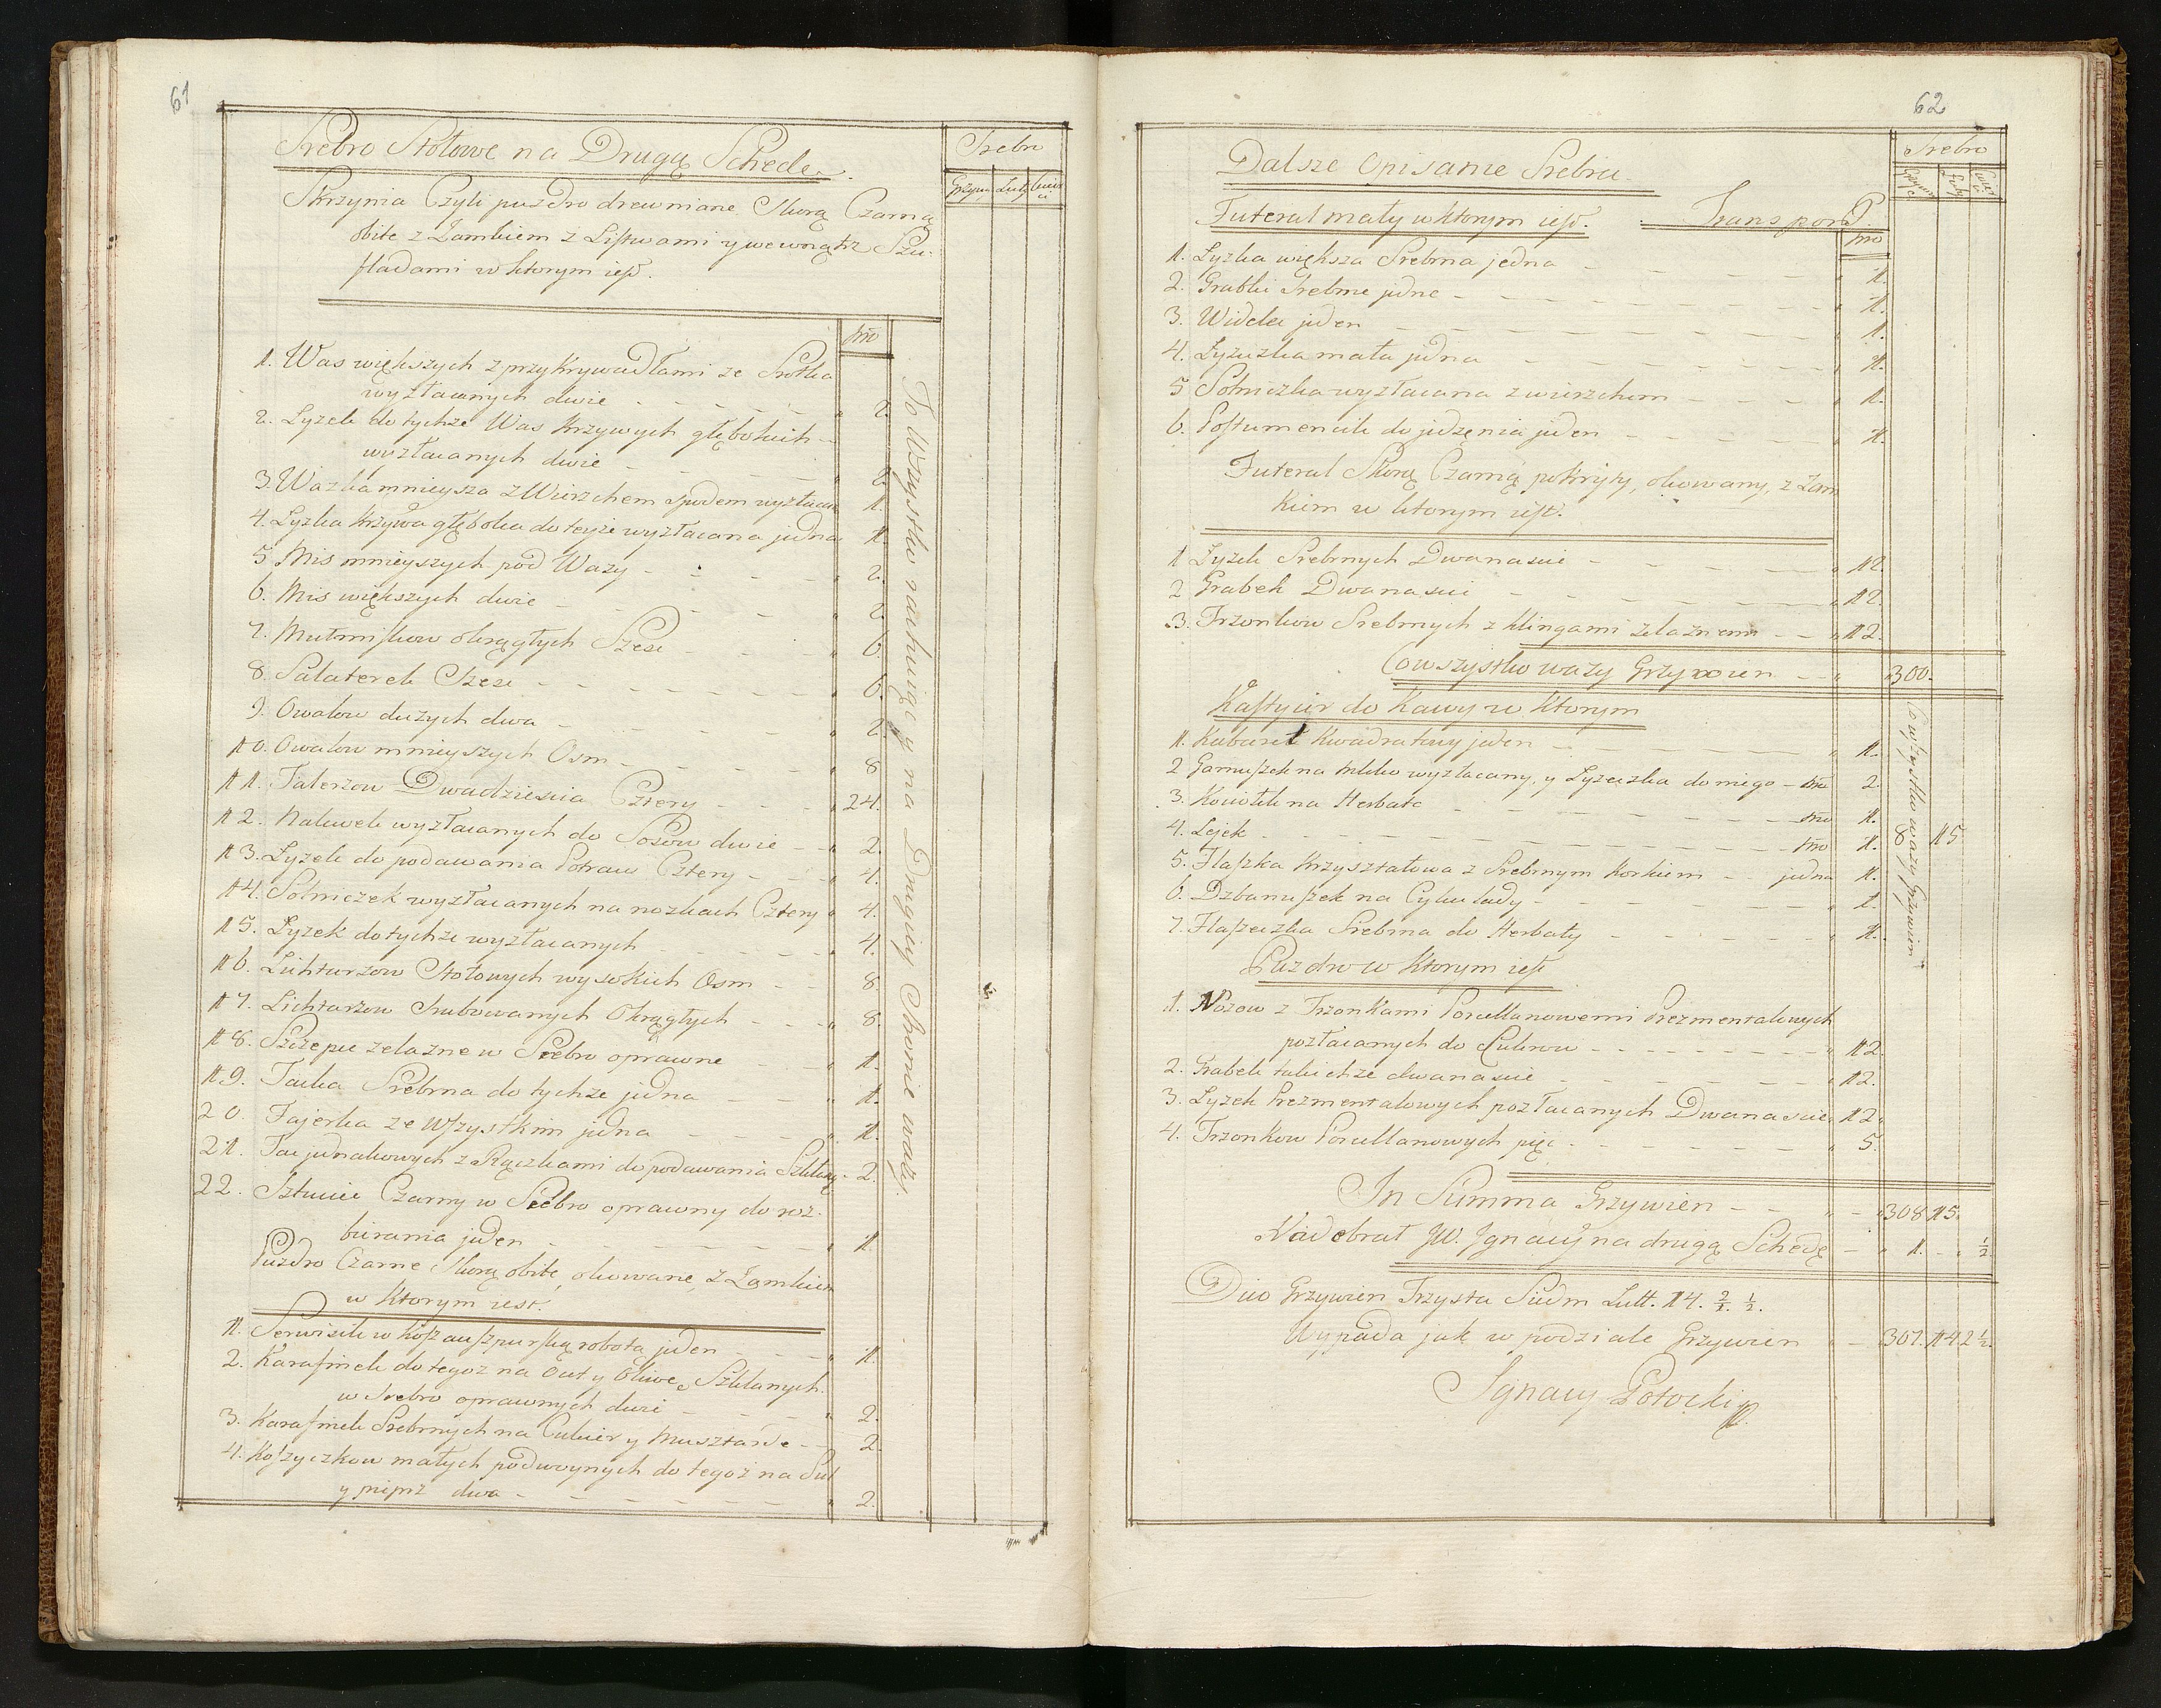 61
Srebro Stołowe na Drugą Schedę
Srebro
Grzyw: Luty Cwier ci
Skrzynia Czyli puzdro drewniane Skorą Czarną
obite z Zamkiem z Listwami y wewnątrz Szu-
fladami w ktorym iest.
Nro
1. Was większych z przykrywadłami ze Srotka
wyzłacanych dwie - 2.
2. Lyzek do tychze Was krzywych głębokich -
wyzłacanych dwie - 2.
3. Wazka mnieysza z Wierzchem spodem wyzłacan 1.
4. Lyzka krzywa głęboka do teyże wyzłacana jedna 1.
5 Mis mnieyszych pod Wazy - 2.
6. Mis większych dwie - 2.
7. Mutmiskow okrągłych Szesc - 6.
8. Salaterek Szesc - 6.
9. Owalow dużych dwa - 2.
10. Owalow mnieyszych Osm - 8
11. Talerzow Dwadziescia Cztery - 24.
12. Nalewek wyzłacanych do Sosow dwie - 2.
13. Lyzek do podawania Potraw Cztery - 4.
14. Solniczek wyzłacanych na nozkach Cztery 4.
15. Lyzek do tychze wyzłacanych - 4.
16. Lichtarzow Stołowych wysokich Osm - 8.
17. Lichtarzow Srubowanych Okrągłych - 8.
18. Szczepce zelazne w Srebro oprawne - 1.
19. Tacka Srebrna do tychze jedna - 1.
20. Fajerka ze Wszystkim jedna - 1.
21. Tac jednakowych z Rączkami do podawania Szkła - 2.
22. Sztuciec Czarny w Srebro oprawny do roz-
bierania jeden - 1.
Puzdro Czarne Skorą obite, okowane, z Zamkiem
w Ktorym iest.
1. Serwisik w kosz auszpurską robotą jeden - 1.
2. Karafinek do tegoz na Ocet y Oliwe, Szklanych
w Srebro oprawnych dwie - 2.
3. Karafinek Srebrnych na Cukier y Musztarde - 2
4. Koszyczkow małych podwoynych do tegoż na Sol
y pieprz dwa - 2.
To Wszystko rachuiąc y na Drugiey Stronie waży.
62
Dalsze Opisanie Srebra
Srebro
Grzyw Luty Cwier ci
Futerał mały w ktorym iest. Transport
Nro
1. Lyzka większa Srebrna jedna - 1.
2. Grabki Srebrne jedne - 1.
3. Widelec jeden - 1.
4. Lyżeczka mała jedna - 1.
5 Solniczka wyzłacana z wierzchem - 1.
6. Postumencik do jedzenia jeden - 1.
Futerał Skorą Czarną pokryty, okowany, z Zam
kiem w ktorym iest.
1 Lyzek Srebrnych Dwanascie - 12.
2 Grabek Dwanascie - 12.
3. Trzonkow Srebrnych z klingami zelaznemi - 12.
Co wszystko wazy Grzywien - 300.
Kastycer do Kawy w Ktorym
1. Kabaret Kwadratowy jeden - 1.
2 Garnuszek na Mleko wyzłacany, y Lyzeczka do niego - Nro 2.
3. Kociołek na Herbate - Nro 1.
4. Lejek - Nro 1. 8 15
5. Flaszka Krzysztalowa z Srebrnym Korkiem - jedna 1.
6. Dzbanuszek na Cykuladę - 1.
7. Flaszeczka Srebrna do Herbaty - 1.
Co wszystko wazy Grzywien
Puzdro w Ktorym iest
1. Nożow z Trzonkami Porcellanowemi Prezmentalowych
pozłacanych do Cukrow - 12.
2. Grabek takichze dwanascie - 12.
3. Lyzek Prezmentalowych pozłacanych Dwanascie 12.
4. Trzonkow Porcellanowych pięc - 5.
In Summa Grzywien - 308 15.
Nadebrał JW. Ignacy na drugą Schedę - 1. - ½
Duo Grzywien Trzysta Siedm Lutt. 14. 2/4. ½.
Wypada jak w podziale Grzywien - 307. 14 2 ½.
Ignacy Potocki